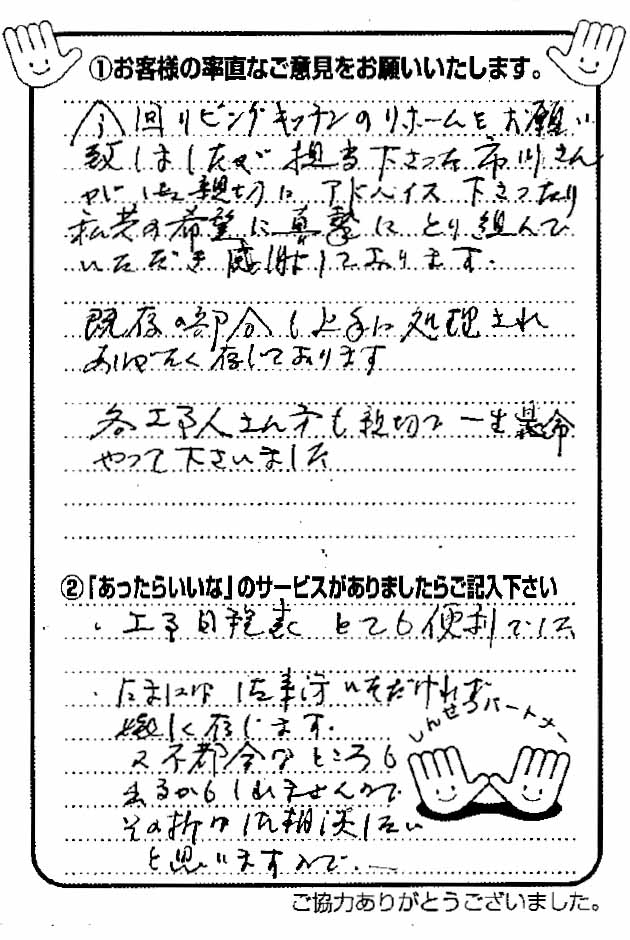 ①お客様の率直なご意見をお願いいたします。
今回リビングキッチンのリホームをお願い
致しましたが担当下さった市川さん
がご親切にアドバイス下さったり
私共の希望に真摯にとり組んで
いただき感謝しております.
既存の部分も上手に処理され
ありがたく存じております
各工事人さん方も親切で一生懸命
やって下さいました
②「あったらいいな」のサービスがありましたらご記入下さい
・工事日程表とても便利でした
・たまにはご連絡いただければ
嬉しく存じます.
又不都合なところも
出るかもしれませんので
その折はご相談したい
と思いますので.
しんせつパートナー
ご協力ありがとうございました。